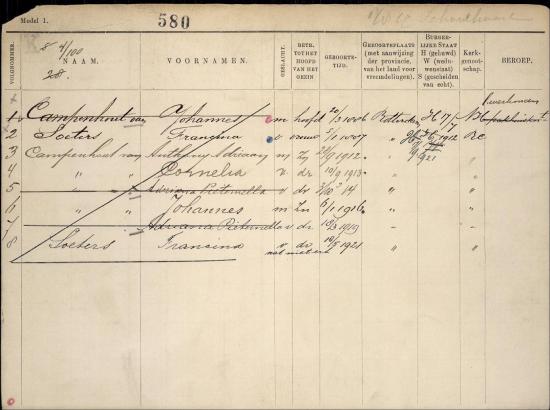 Model 1. 580
VOLGNOMMER. NAAM. VOORNAMEN. GESLACHT. BETR. TOT HET HOOFD VAN HET GEZIN GEBOORTE-TIJD. GEBOORTEPLAATS (met aanwijzing der provincie, van het land voor vreemdelingen). BURGER-LIJKE STAAT H (gehuwd) W (weduwenstaat) S (gescheiden van echt). Kerk-genoot-schap. BEROEP.
8 4/100
28.
1 Campenhout van Johannes m hoofd Rotterdam H 17/7 NH
2 Soeters Francina v vrouw 5/1 1887 " 1912 RC
3 Campenhout van Anthony Adriaan m zn 29/9 1912 " 1921
4 " " Cornelia v dr 10/9 1913 "
5 " " Adriana Pieternella v dr "
6 " " Johannes m zn 6/1 1916 "
7 Adriana Pieternella v dr 1919 "
8 Soeters Francina v dr 1921 "